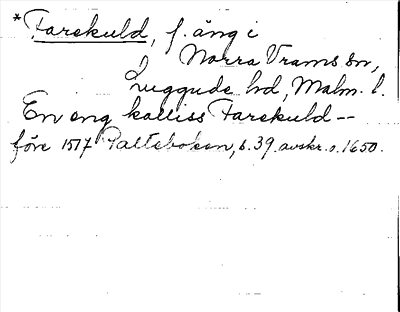 *Farekuld, f. äng i
Norra Vrams sn,
Luggude hd, Malm. l.
En eng kalliss Farekuld --
före 1517 Palteboken, s. 39. avskr. o. 1650.